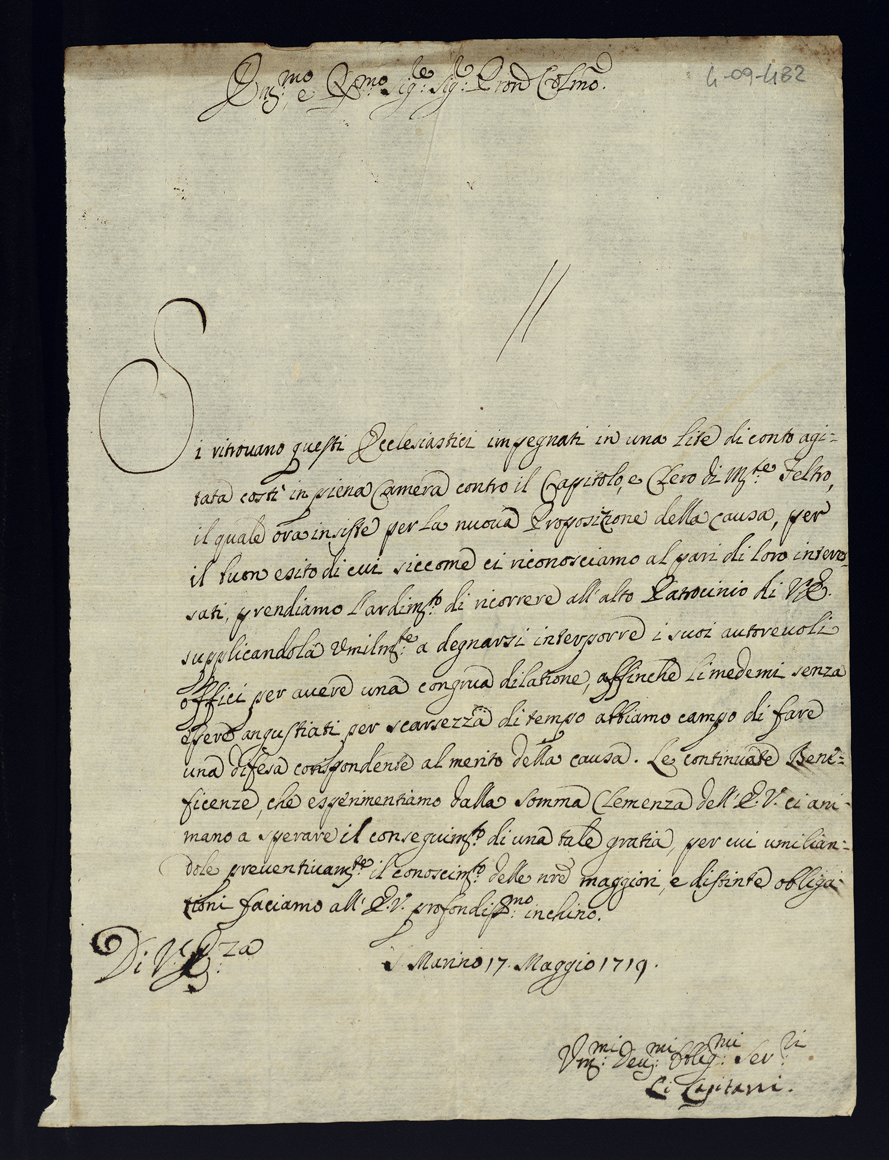 Em.mo, e R.mo Sig.re Sig.r Pron Colmo.
4-09-482
Si ritrovano questi Ecclesiastici impegnati in una lite di conto agi-
tata costì in piena Camera contro il Capitolo, e Clero di M.te Feltro,
il quale ora insiste per la nuova Proposizione della causa, per
il buon esito di cui siccome ci riconosciamo al pari di loro interes
sati, prendiamo l'ardim.to di ricorrere all'alto Patrocinio di V.E.
supplicandola Umilm.te a degnarsi interporre i suoi autorevoli
offici per avere una congrua dilatione, affinche li medemi senza
essere angustiati per scarsezza di tempo abbiamo campo di fare
una difesa corispondente al merito della causa. Le continuate Bene-
ficenze, che esperimentiamo dalla somma Clemenza dell'E.V. ci ani-
mano a sperare il conseguim.to di una tale gratia, per cui umilian-
dole preventivam.te il conoscim.to delle nre maggiori, e distinte obliga-
tioni facciamo all'E.V. profondiss.mo inchino.
Di V. E.za
S. Marino 17. Maggio 1719.
Um.mi Dev.mi Oblig.mi Ser.vi
Li Capitani.